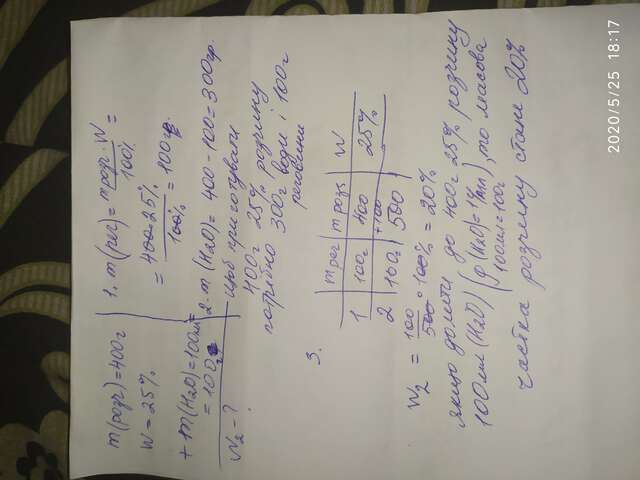 m(розч)=400г
W=25%
+1m(H₂O)=100мл=
=100г
W₂-?
1. m(реч)= mрозч·W/100% =
= 400·25%/100% = 100гр.
2. m(H₂O)= 400-100=300гр.
щоб приготувати
400г 25% розчину
потрібно 300г води і 100г
речовини
3.
mреч | mрозч | W
1 | 100г | 400 | 25%
+100
2 | 100г | 500
W₂ = 100/500 · 100% = 20%
якщо долити до 400г 25% розчину
100мл (H₂O) (ρ(H₂O)=1г/мл), то масова
100мл=100г
частка розчину стане 20%
2020/5/25 18:17